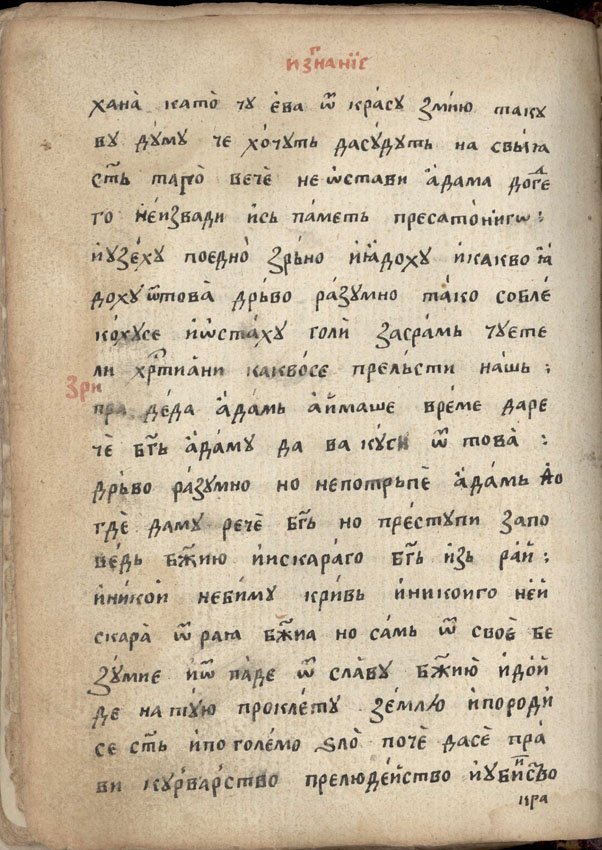 изгнанїе
хана̀ като̀ чу ева ѿ кра́су змию таку
ву ду́му че хо́чуть дасу́дуть на свы́ꙗ
ст҃ь тагро̀ вечѐ не ѡ́стави а́дама дог҃ле
го не́извади ись па́меть пресато́нигѡ :
и҆узе́ху поедно̀ зрь́но и҆ꙗ́доху и҆какво ꙗ҆́
доху ѿтова̀ дрь́во ра́зумно та́ко собле́
ко́хусе и҆ѡста́ху голѝ засра́мь чуете
ли хр҃тиа́ни какво́се прельсти нашь :
Зри
пра де́да а҆да́мь а҆и́маше вре́ме даре
чѐ бг҃ь а҆да́му да ва куси ѿ това̀ :
дрь́во ра́зумно но непотрьпѐ а҆да́мь до
гдѐ даму речѐ бг҃ь но пре́ступи запо
ведь бж҃ию и҆иска́раго бг҃ь изь рай :
и҆никои҆ неби́му кри́вь и҆никоиго не́й
скара̀ ѿ раꙗ бж҃иа но са́мь ѿ своѐ бе
зу́мие и҆ѿ па́де ѿ сла́ву бж҃ию̀ и҆дой
де на ту́ю прокле́ту зе́млю и҆породи
се ст҃ь и҆по голе́мо ѕло̀ почѐ дасѐ пра́
ви ку́рварство прелюде́йство и҆уби́иство
кра